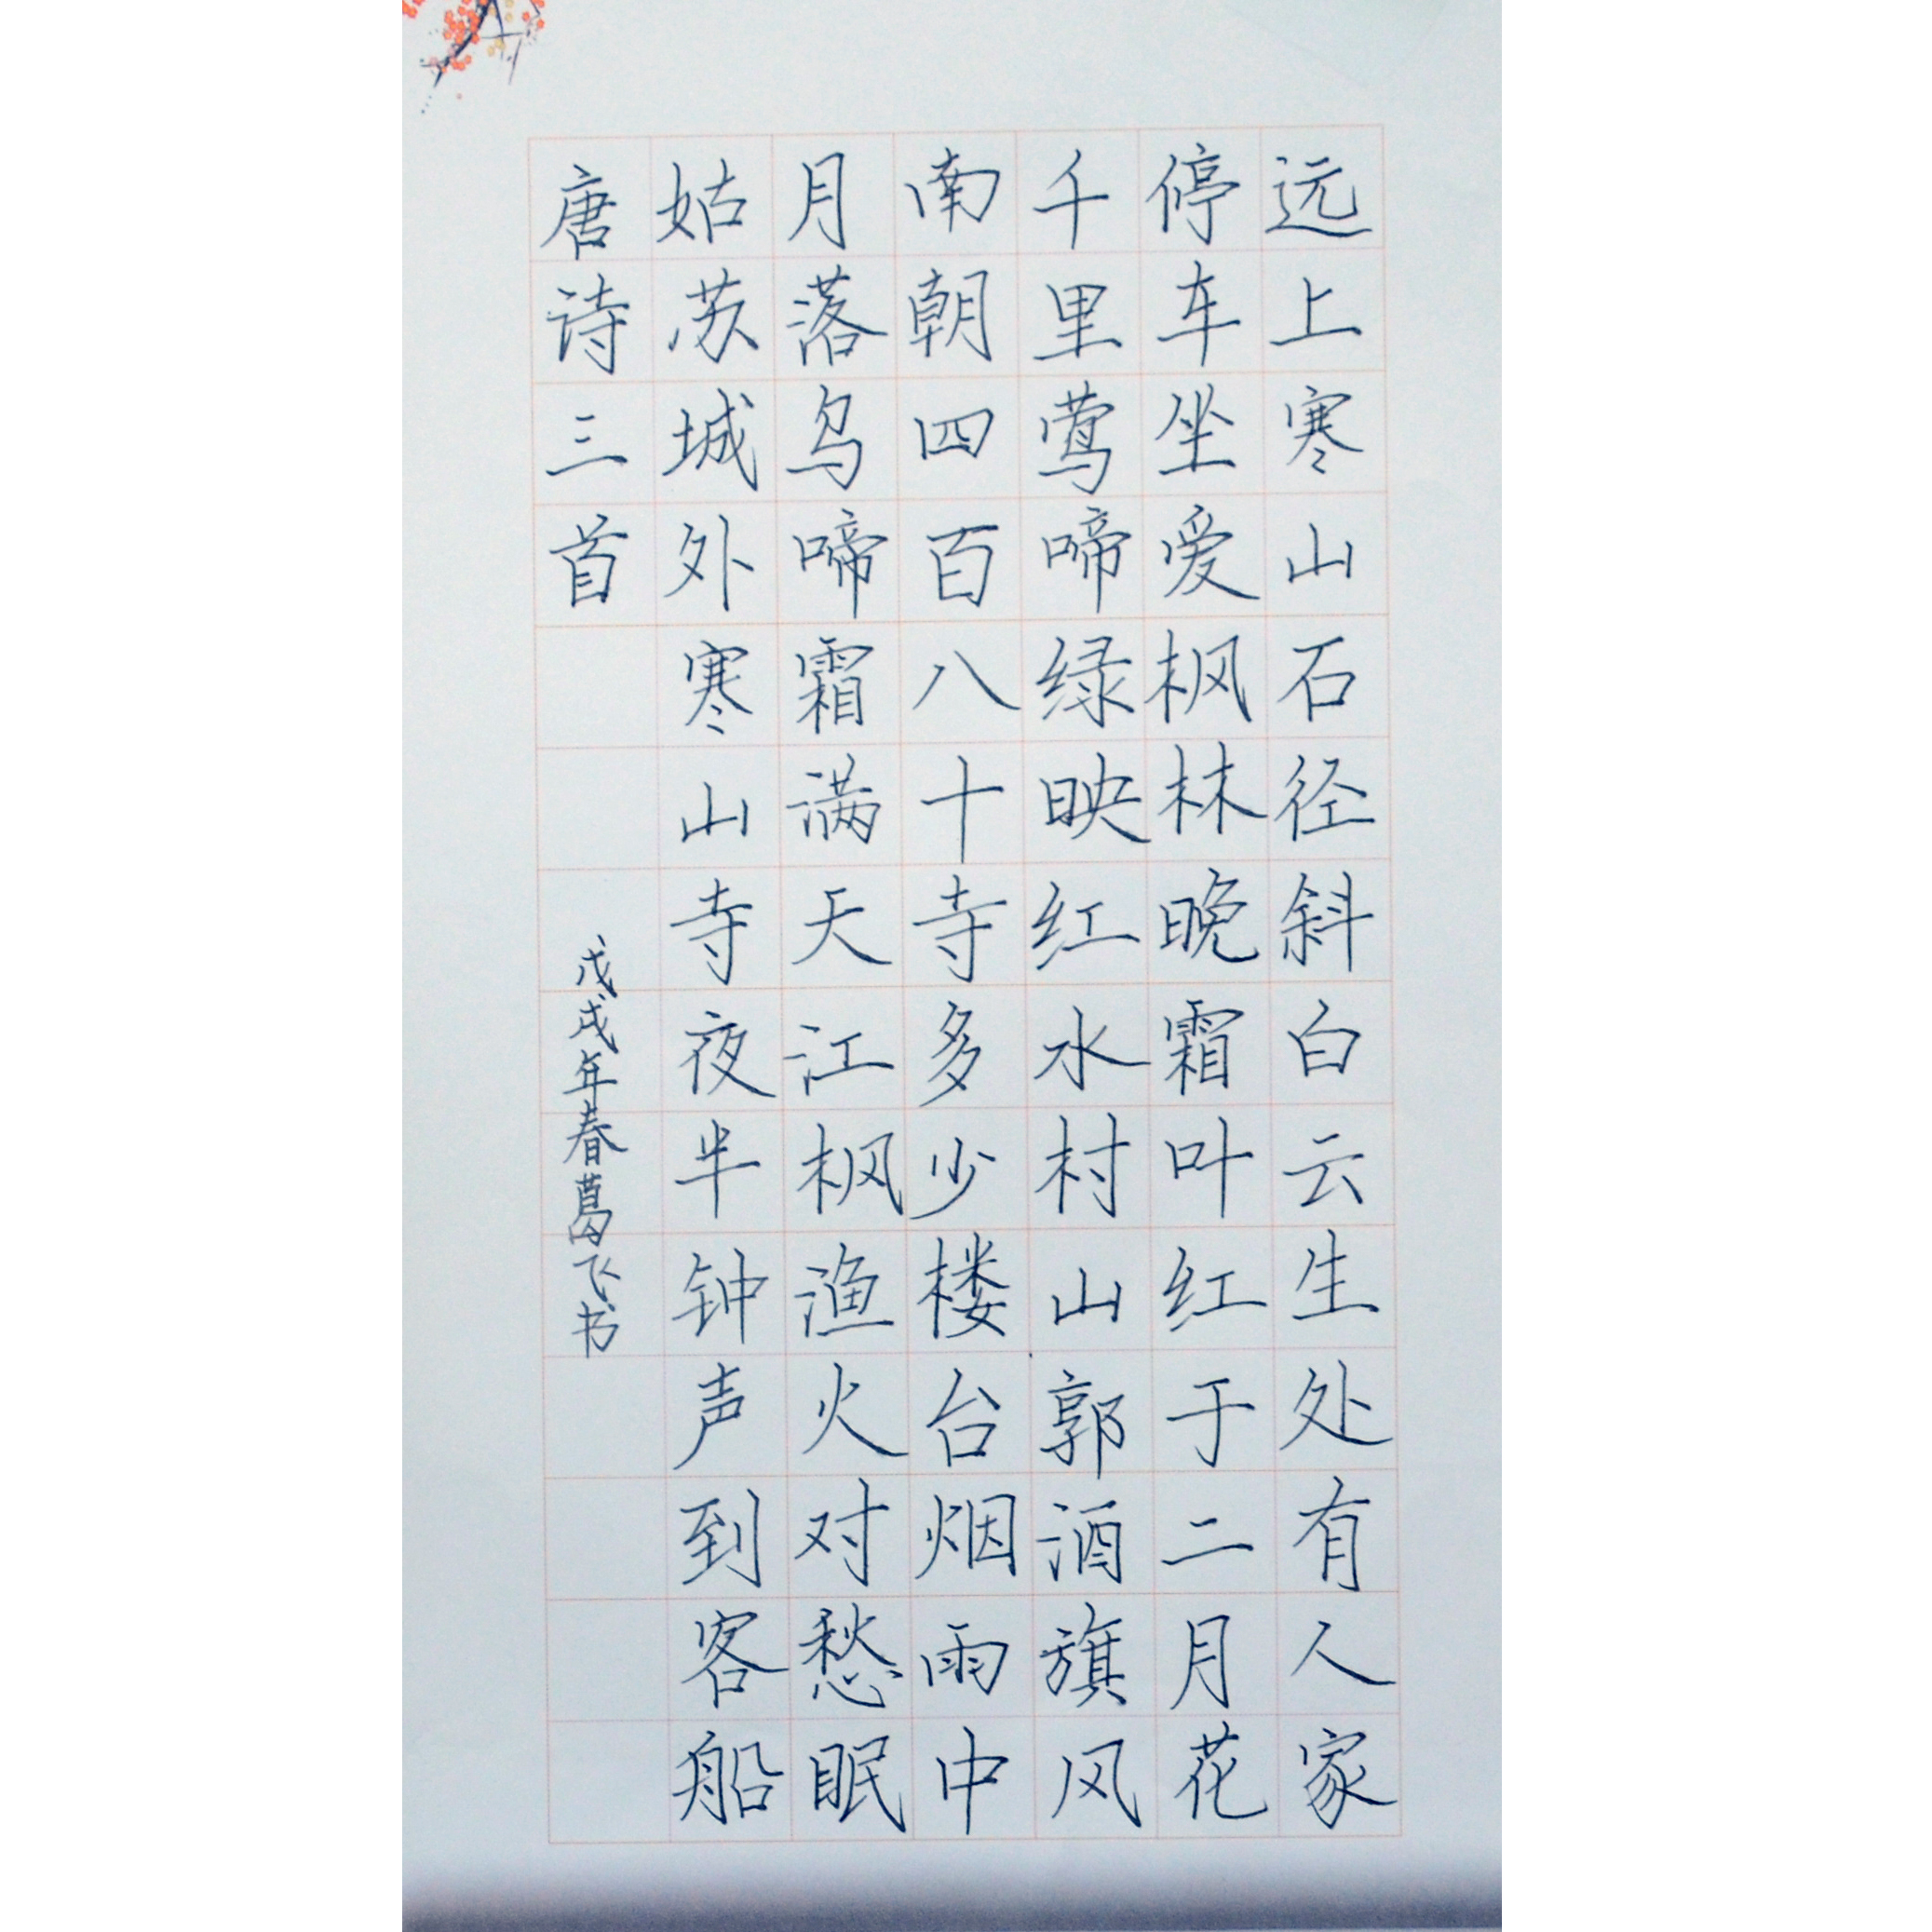 远上寒山石径斜白云生处有人家
停车坐爱枫林晚霜叶红于二月花
千里莺啼绿映红水村山郭酒旗风
南朝四百八十寺多少楼台烟雨中
月落乌啼霜满天江枫渔火对愁眠
姑苏城外寒山寺夜半钟声到客船
唐诗三首
戊戌年春葛飞书